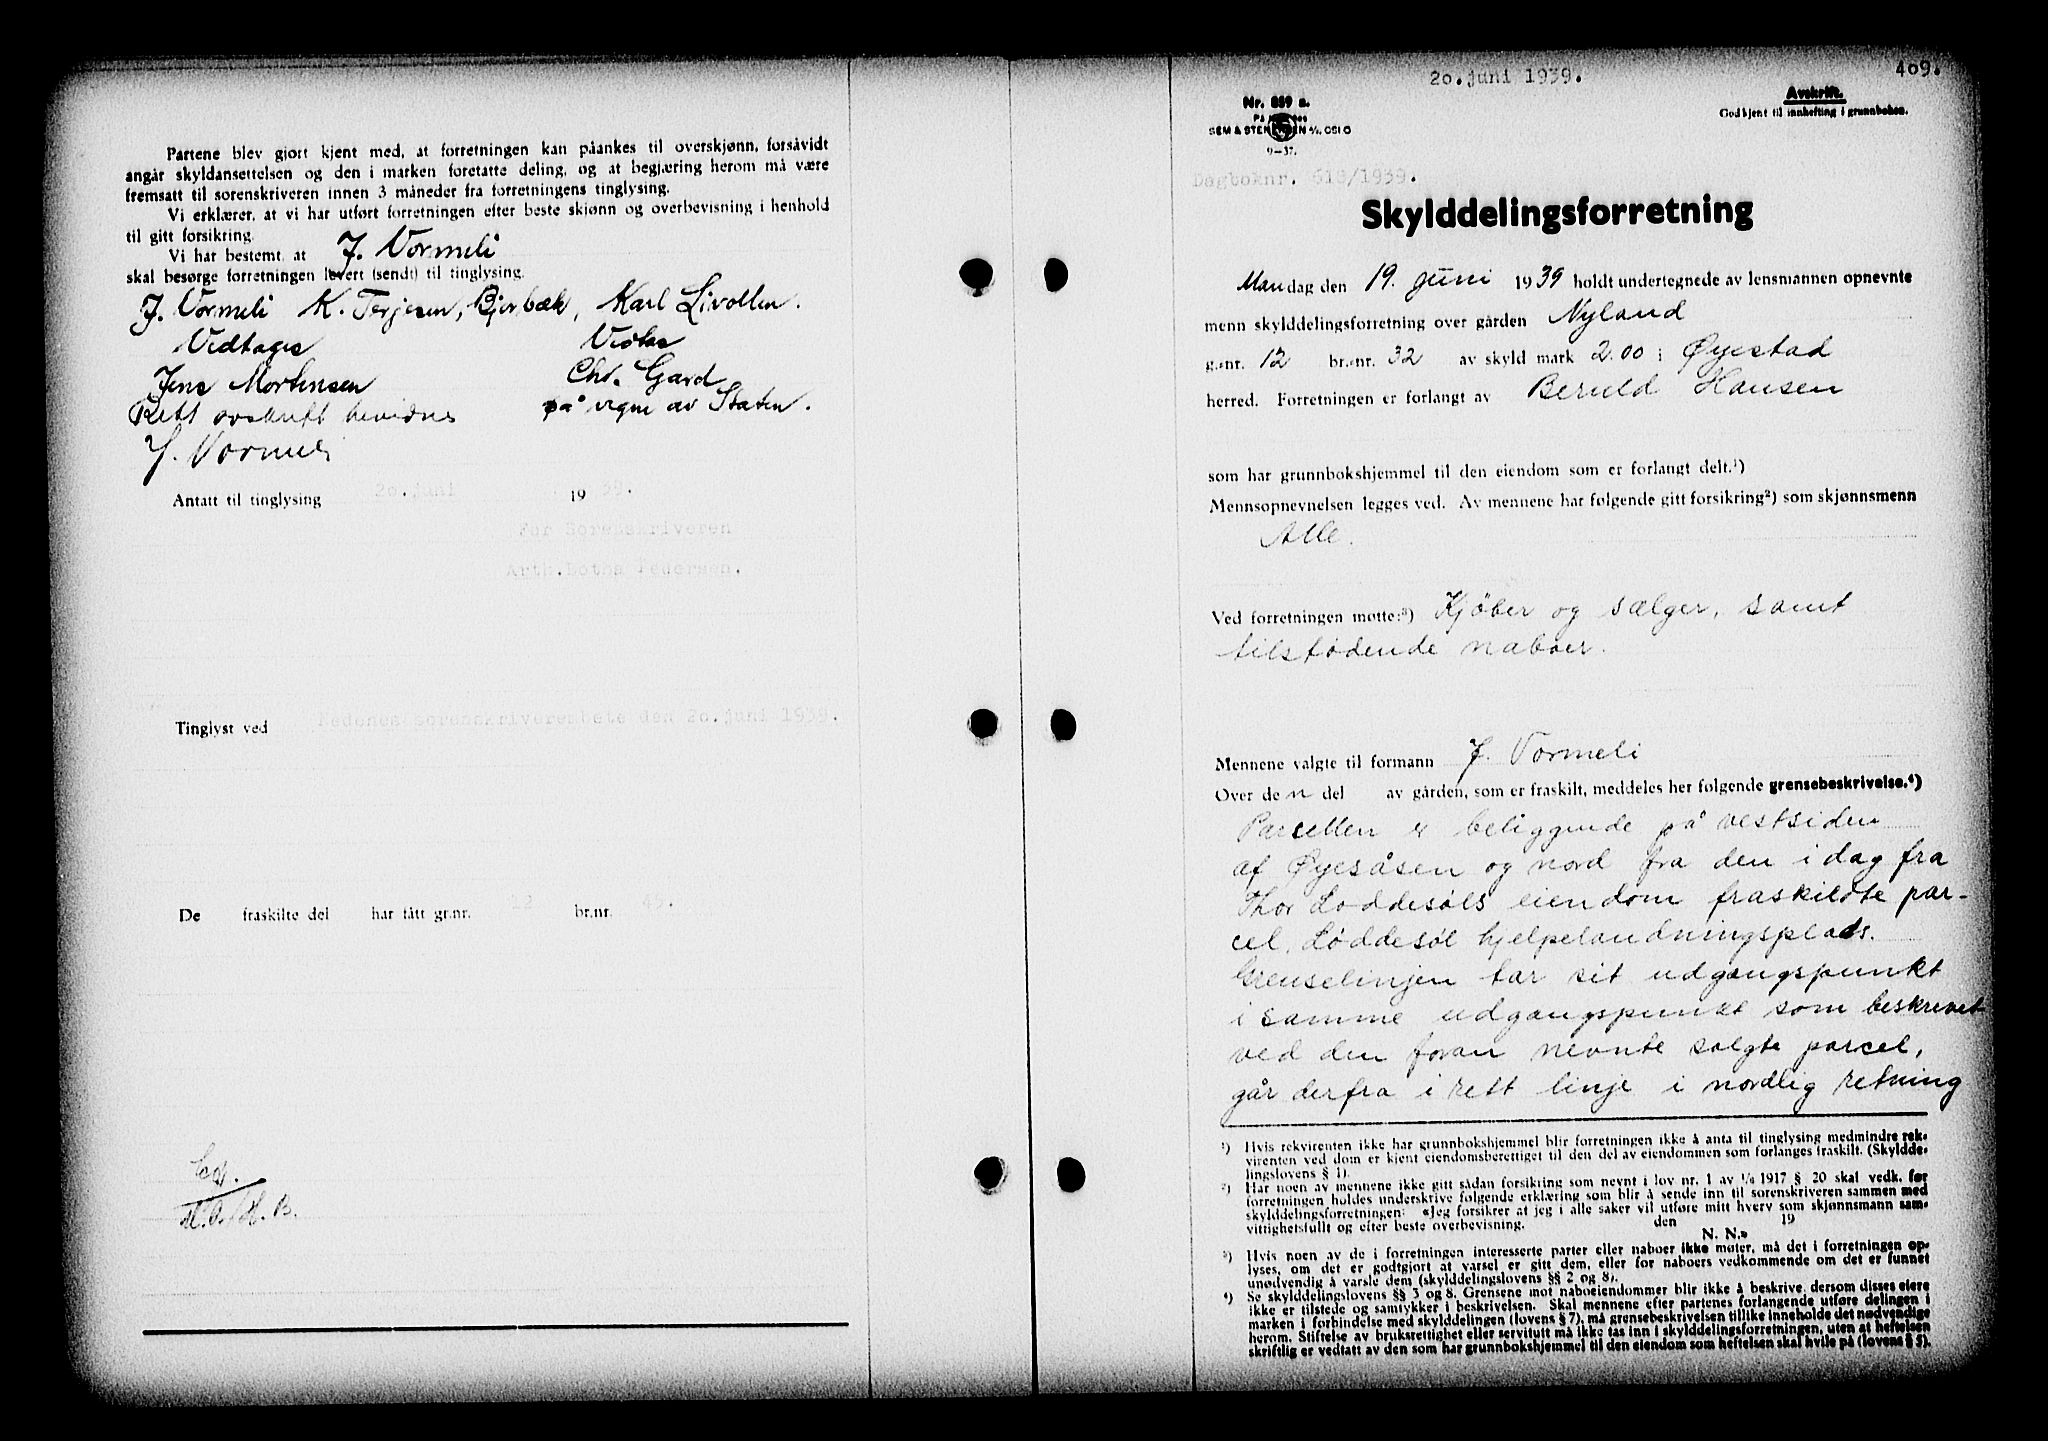 Partene blev gjort kjent med, at forretningen kan påankes til overskjønn, forsåvidt
angår skyldansettelsen og den i marken foretatte deling, og at begjæring herom må være
fremsatt til sorenskriveren innen 3 måneder fra forretningens tinglysing.
Vi erklærer, at vi har utført forretningen efter beste skjønn og overbevisning i henhold
til gitt forsikring.
Vi har bestemt at J. Vormeli
skal besørge forretningen levert (sendt) til tinglysing.
J. Vormeli K. Terjesen, Bjorbæk, Karl Livollen.
Vedtages Vedtas
Jens Mortensen Chr. Gard
Rett avskrift bevidnes på vegne av Staten.
J. Vormeli
Antatt til tinglysing 20. juni 19 39.
For Sorenskriveren
Arth. Lotha Pedersen.
Tinglyst ved Nedenes sorenskriverembete den 20. juni 1939.
De fraskilte del har fått gr.nr. 12 br.nr. 45.
M.O./H.B.
20. juni 1939.
409.
Nr. 859 a.
SEM & STENERSEN A/S, OSLO
9-37.
Avskrift.
Godkjent til innhefting i grunnboken.
Dagboknr. 618/1939.
Skylddelingsforretning
Mandag den 19. juni 1939 holdt undertegnede av lensmannen opnevnte
menn skylddelingsforretning over gården Nyland
g.-nr. 12 br.-nr. 32 av skyld mark 2.00 i Øyestad
herred. Forretningen er forlangt av Beruld Hansen
som har grunnbokshjemmel til den eiendom som er forlangt delt.¹)
Mennsopnevnelsen legges ved. Av mennene har følgende gitt forsikring²) som skjønnsmenn
Alle.
Ved forretningen møtte:³) Kjøber og sælger, samt
tilstødende naboer.
Mennene valgte til formann J. Vormeli
Over de n del av gården, som er fraskilt, meddeles her følgende grensebeskrivelse.⁴)
Parcellen er beliggende på vestsiden
af Øyesåsen og nord fra den i dag fra
Thor Løddesøls eiendom fraskildte par-
cel, Løddesøl hjelpelandningsplads.
Grenselinjen tar sit udgangspunkt
i samme udgangspunkt som beskrevet
ved den foran nevnte solgte parcel,
går derfra i rett linje i nordlig retning
¹) Hvis rekvirenten ikke har grunnbokshjemmel blir forretningen ikke å anta til tinglysing medmindre rek-
virenten ved dom er kjent eiendomsberettiget til den del av eiendommen som forlanges fraskilt. (Skyldde-
lingslovens § 1).
²) Har noen av mennene ikke gitt sådan forsikring som nevnt i lov nr. 1 av 1/6 1917 § 20 skal vedk. før
forretningen holdes underskrive følgende erklæring som blir å sende inn til sorenskriveren sammen med
skylddelingsforretningen: «Jeg forsikrer at jeg i alle saker vil utføre mitt hverv som skjønnsmann sam-
vittighetsfullt og efter beste overbevisning. den 19
N. N.»
³) Hvis noen av de i forretningen interesserte parter eller naboer ikke møter, må det i forretningen op-
lyses, om det er godtgjort at varsel er gitt dem, eller for naboers vedkommende om det er funnet
unødvendig å varsle dem (skylddelingslovens §§ 2 og 8).
⁴) Se skylddelingslovens §§ 3 og 8. Grensene mot naboeiendommer blir ikke å beskrive, dersom disses eiere
ikke er tilstede og samtykker i beskrivelsen. Skal mennene efter partenes forlangende utføre delingen i
marken i forbindelse med skylddelingen (lovens § 7), må grensebeskrivelsen tillike inneholde det nødvendige
herom. Stiftelse av bruksrettighet eller servitutt må ikke tas inn i skylddelingsforretningen, uten at heftelsen
skriftlig er vedtatt av den som har grunnbokshjemmel til den eiendom som heftelsen skal hvile på (lovens § 5).